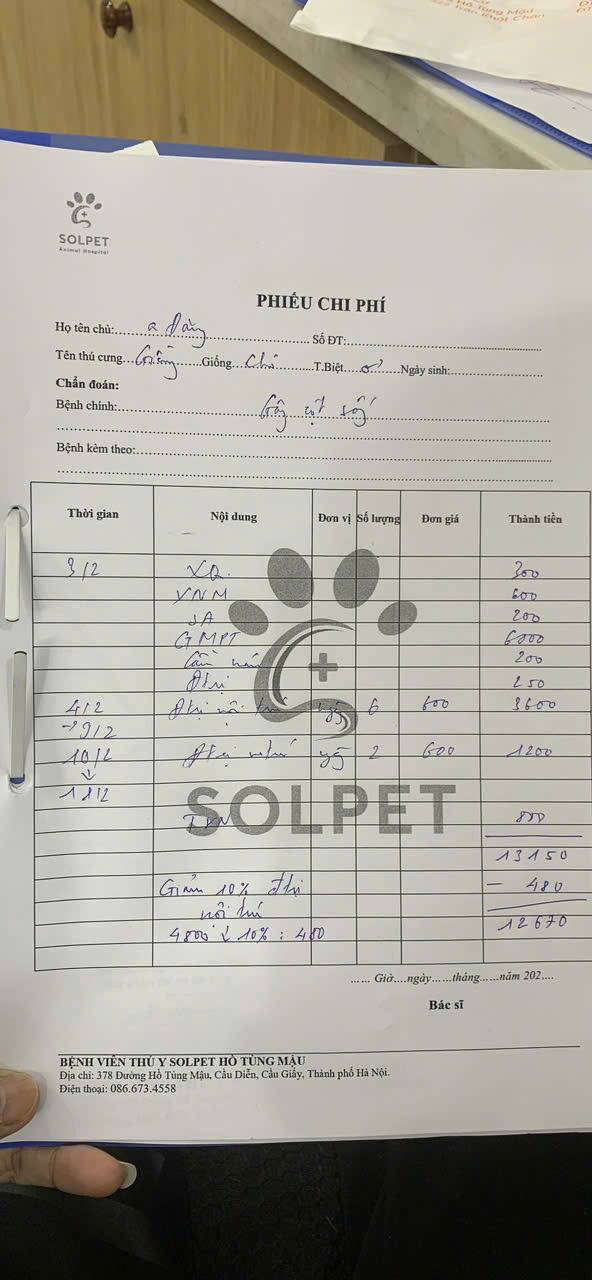 Hồ Tùng Mậu
SOLPET
Animal Hospital
PHIẾU CHI PHÍ
Họ tên chủ: a Đăng Số ĐT:
Tên thú cưng Giống Chó T.Biệt ♂ Ngày sinh:
Chẩn đoán:
Bệnh chính: Gãy cột sống
Bệnh kèm theo:
Thời gian Nội dung Đơn vị Số lượng Đơn giá Thành tiền
3/2 XQ. 300
XNM 600
SA 200
GMPT 6000
200
Đtrị 250
4/2 Đtrị nội trú ngày 6 600 3600
→ 9/2
10/2 Đtrị nội trú ngày 2 600 1200
↓
11/2
SOLPET
TXN 800
13150
Giảm 10% đtrị - 480
nội trú 12670
4800 ↓ 10% : 480
...... Giờ....ngày......tháng......năm 202....
Bác sĩ
BỆNH VIỆN THÚ Y SOLPET HỒ TÙNG MẬU
Địa chỉ: 378 Đường Hồ Tùng Mậu, Cầu Diễn, Cầu Giấy, Thành phố Hà Nội.
Điện thoại: 086.673.4558